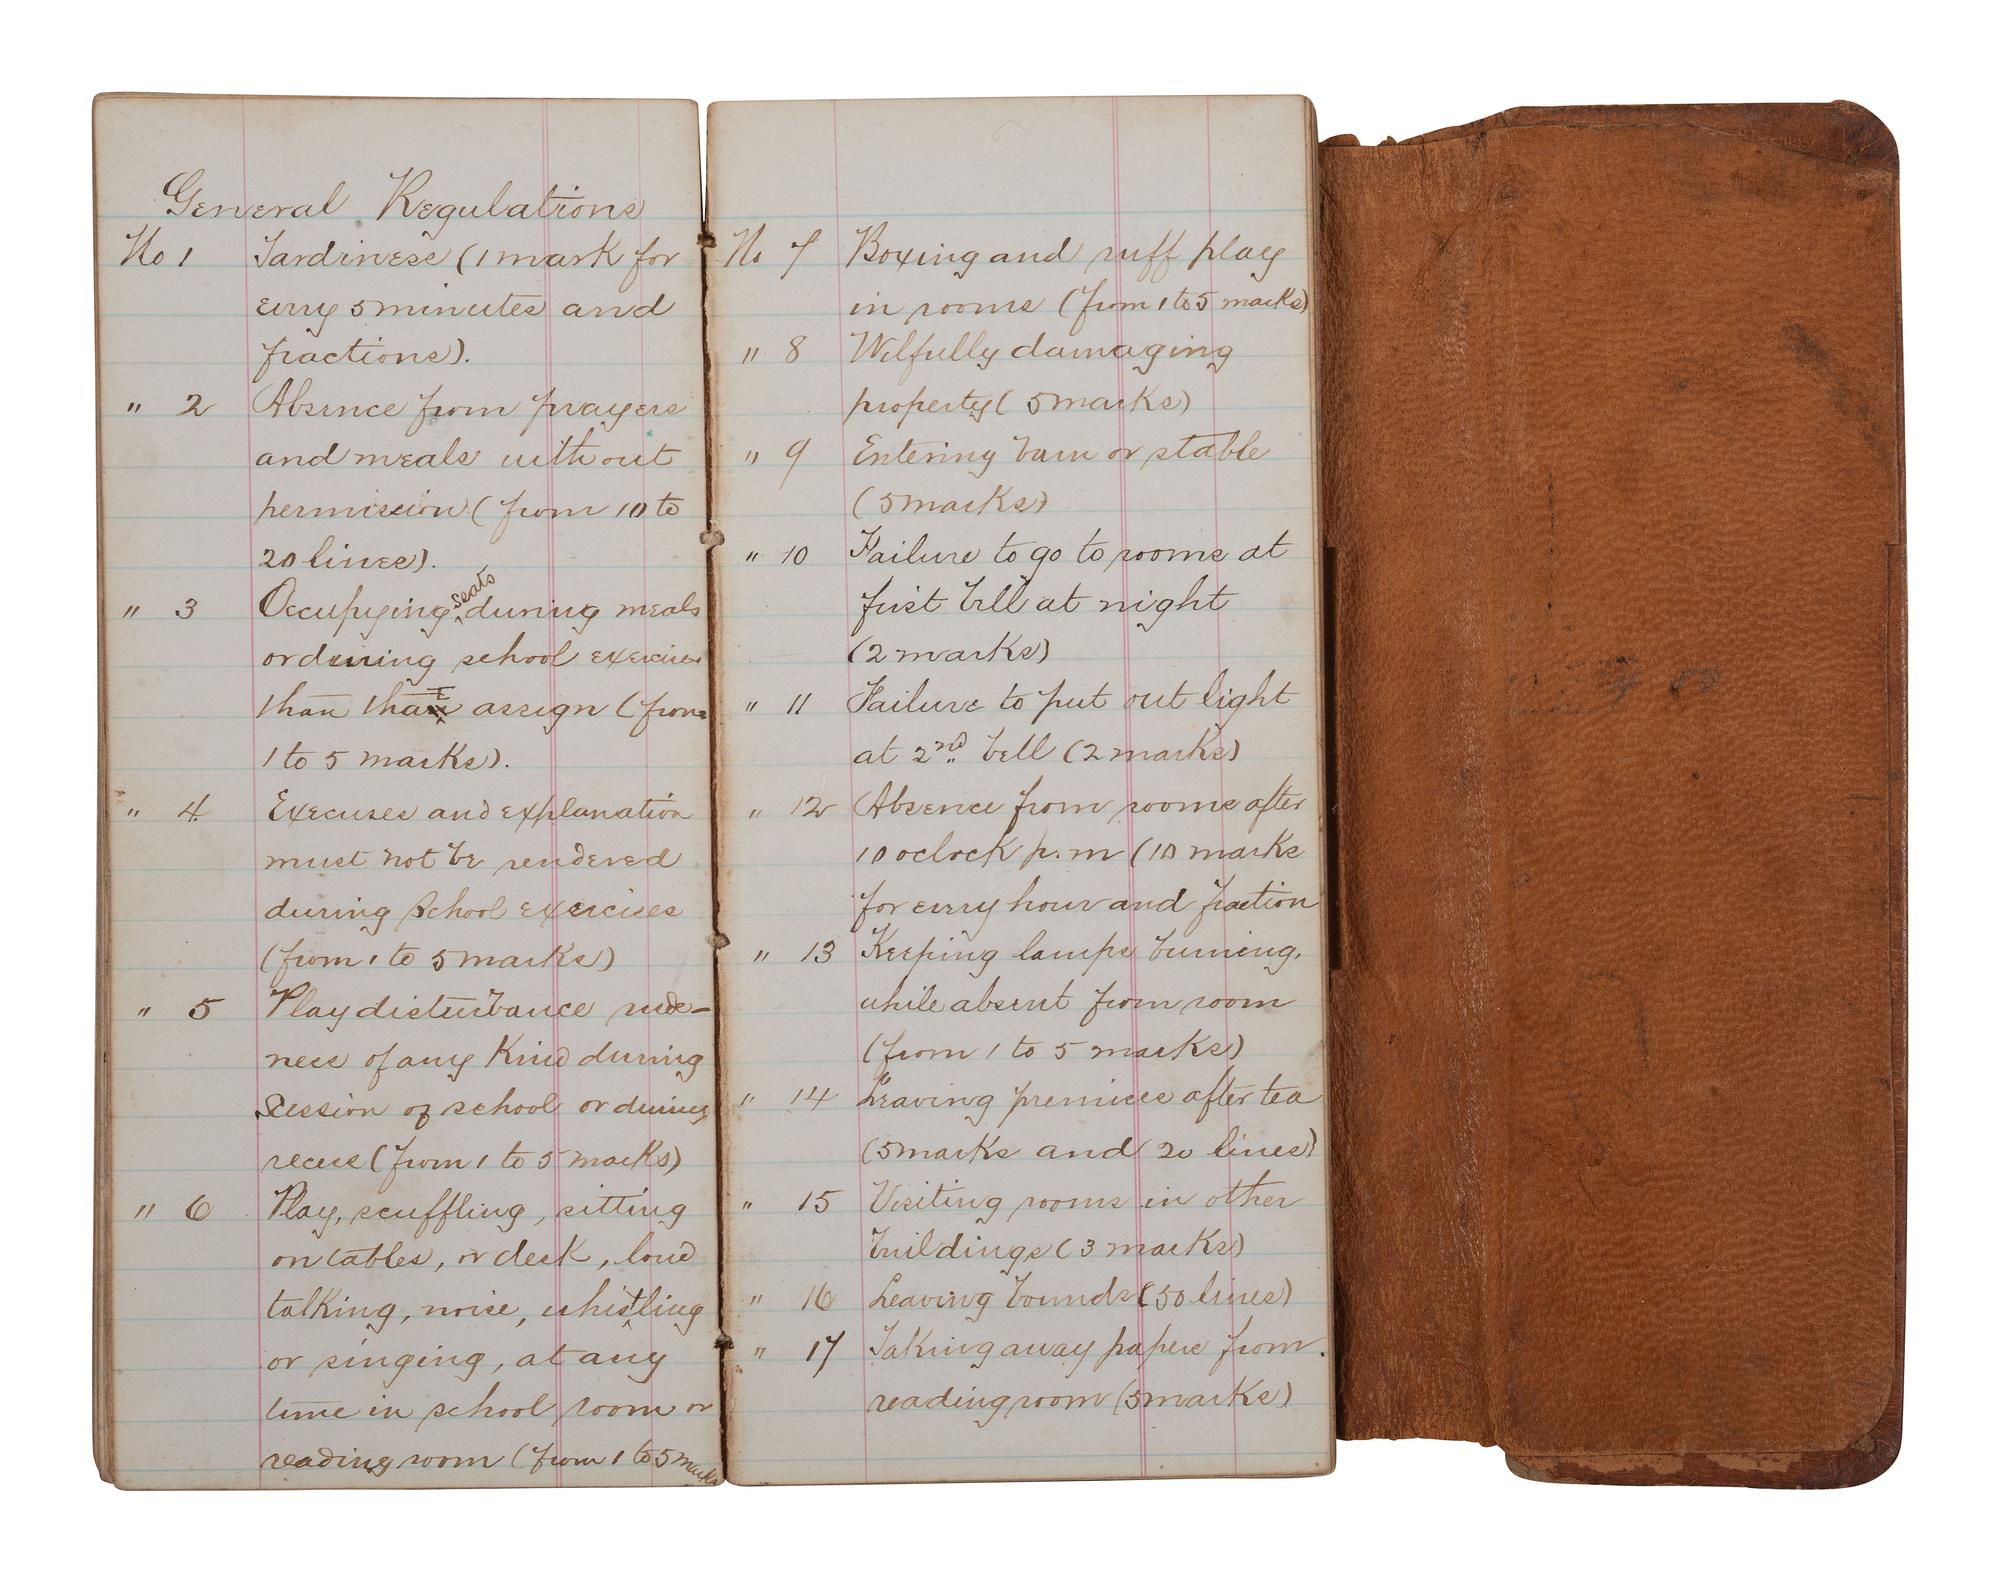 General Regulations
No 1 Tardiness (1 mark for
every 5 minutes and
fractions).
" 2 Absence from prayers
and meals without
permission (from 10 to
20 lines).
" 3 Occupying seats during meals
or during school exercises
than than assign (from
1 to 5 marks).
" 4. Execuses and explanation
must not be rendered
during school exercises
(from 1 to 5 marks)
" 5 Play disturbance rude-
ness of any kind during
session of school or during
recess (from 1 to 5 marks)
" 6 Play, scuffling, sitting
on tables, or desk, loud
talking, noise, whistling
or singing, at any
time in school room or
reading room (from 1 to 5 marks
No 7 Boxing and ruff play
in rooms (from 1 to 5 marks)
" 8 Wilfully damaging
property (5 marks)
" 9 Entering barn or stable
(5 marks)
" 10 Failure to go to rooms at
first bell at night
(2 marks)
" 11 Failure to put out light
at 2nd bell (2 marks)
" 12 Absence from rooms after
10 oclock p.m (10 marks
for every hour and fraction
" 13 Keeping lamps burning,
while absent from room
(from 1 to 5 marks)
" 14 Leaving premises after tea
(5 marks and 20 lines)
" 15 Visiting rooms in other
buildings (3 marks)
" 16 Leaving bounds (50 lines)
" 17 Taking away papers from.
reading room (5 marks)